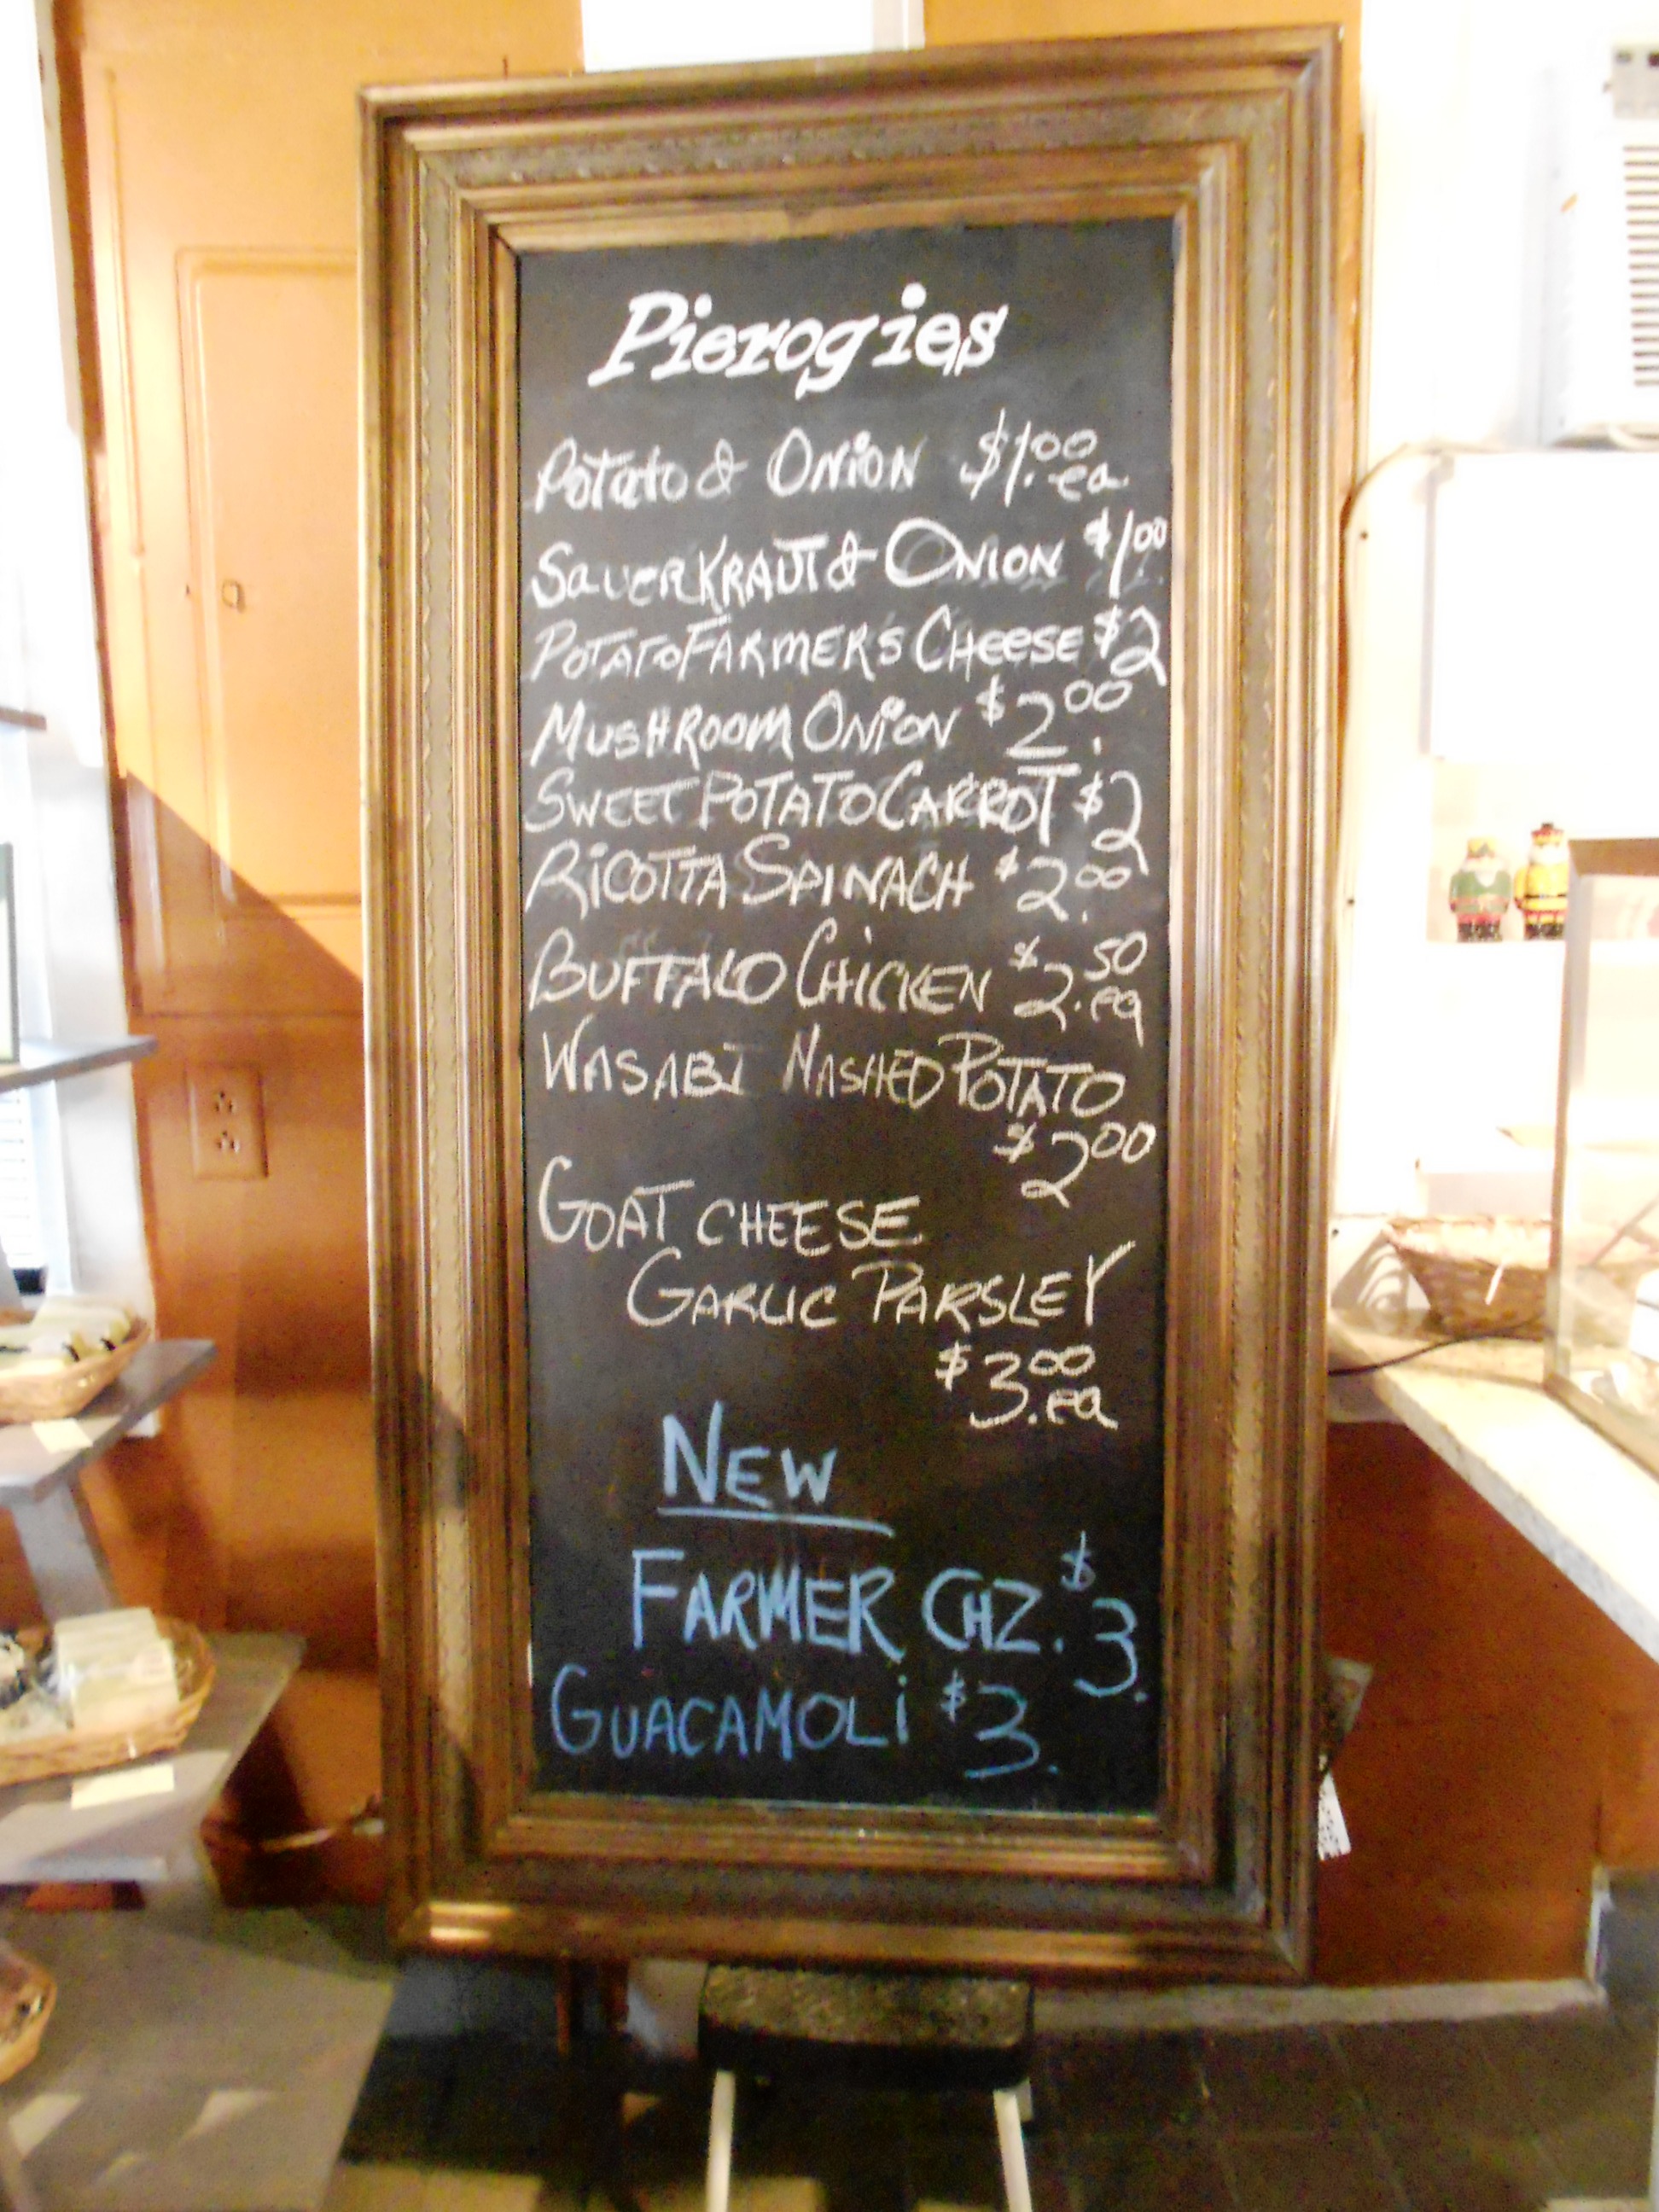 Pierogies
Potato & Onion $1.00 ea.
SauerKRAUT & ONION $1.00
POTATO FARMER'S CHeeSE $2
MUSHROOM ONiON $2.00
SWEET POTATO CARROT $2
RiCOTTA SPINACH $2.00
BUFFALO CHiCKEN $2.50 ea
WASABI MASHED POTATO
$2.00
GOAT CHEESE
GARLIC PARSLEY
$3.00 ea
NEW
FARMER CHZ. $3.
GUACAMOLi $3.